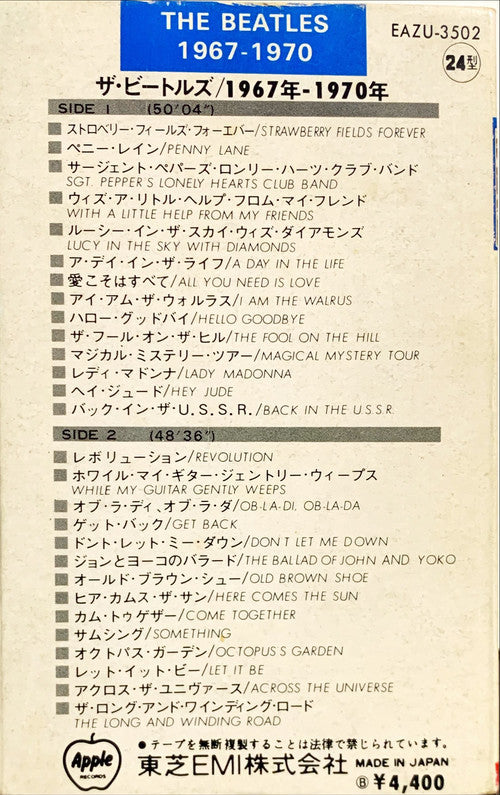 THE BEATLES
1967-1970
EAZU-3502
24型
ザ・ビートルズ/1967年-1970年
SIDE 1 (50'04")
ストロベリー・フィールズ・フォーエバー/STRAWBERRY FIELDS FOREVER
ペニー・レイン/PENNY LANE
サージェント・ペパーズ・ロンリー・ハーツ・クラブ・バンド
SGT. PEPPER'S LONELY HEARTS CLUB BAND
ウィズ・ア・リトル・ヘルプ・フロム・マイ・フレンド
WITH A LITTLE HELP FROM MY FRIENDS
ルーシー・イン・ザ・スカイ・ウィズ・ダイアモンズ
LUCY IN THE SKY WITH DIAMONDS
ア・デイ・イン・ザ・ライフ/A DAY IN THE LIFE
愛こそはすべて/ALL YOU NEED IS LOVE
アイ・アム・ザ・ウォルラス/I AM THE WALRUS
ハロー・グッドバイ/HELLO GOODBYE
ザ・フール・オン・ザ・ヒル/THE FOOL ON THE HILL
マジカル・ミステリー・ツアー/MAGICAL MYSTERY TOUR
レディ・マドンナ/LADY MADONNA
ヘイ・ジュード/HEY JUDE
バック・イン・ザ・U.S.S.R./BACK IN THE U.S.S.R.
SIDE 2 (48'36")
レボリューション/REVOLUTION
ホワイル・マイ・ギター・ジェントリー・ウィープス
WHILE MY GUITAR GENTLY WEEPS
オブ・ラ・ディ、オブ・ラ・ダ/OB-LA-DI, OB-LA-DA
ゲット・バック/GET BACK
ドント・レット・ミー・ダウン/DON'T LET ME DOWN
ジョンとヨーコのバラード/THE BALLAD OF JOHN AND YOKO
オールド・ブラウン・シュー/OLD BROWN SHOE
ヒア・カムス・ザ・サン/HERE COMES THE SUN
カム・トゥゲザー/COME TOGETHER
サムシング/SOMETHING
オクトパス・ガーデン/OCTOPUS'S GARDEN
レット・イット・ビー/LET IT BE
アクロス・ザ・ユニヴァース/ACROSS THE UNIVERSE
ザ・ロング・アンド・ワインディング・ロード
THE LONG AND WINDING ROAD
●テープを無断複製することは法律で禁じられています。
Apple
RECORDS
東芝EMI株式会社 MADE IN JAPAN
Ⓑ¥4,400